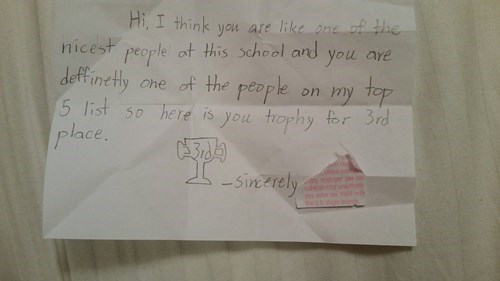 Hi, I think you are like one of the
nicest people at this school and you are
deffinetly one of the people on my top
5 list so here is you trophy for 3rd
place.
3rd
-sincerely